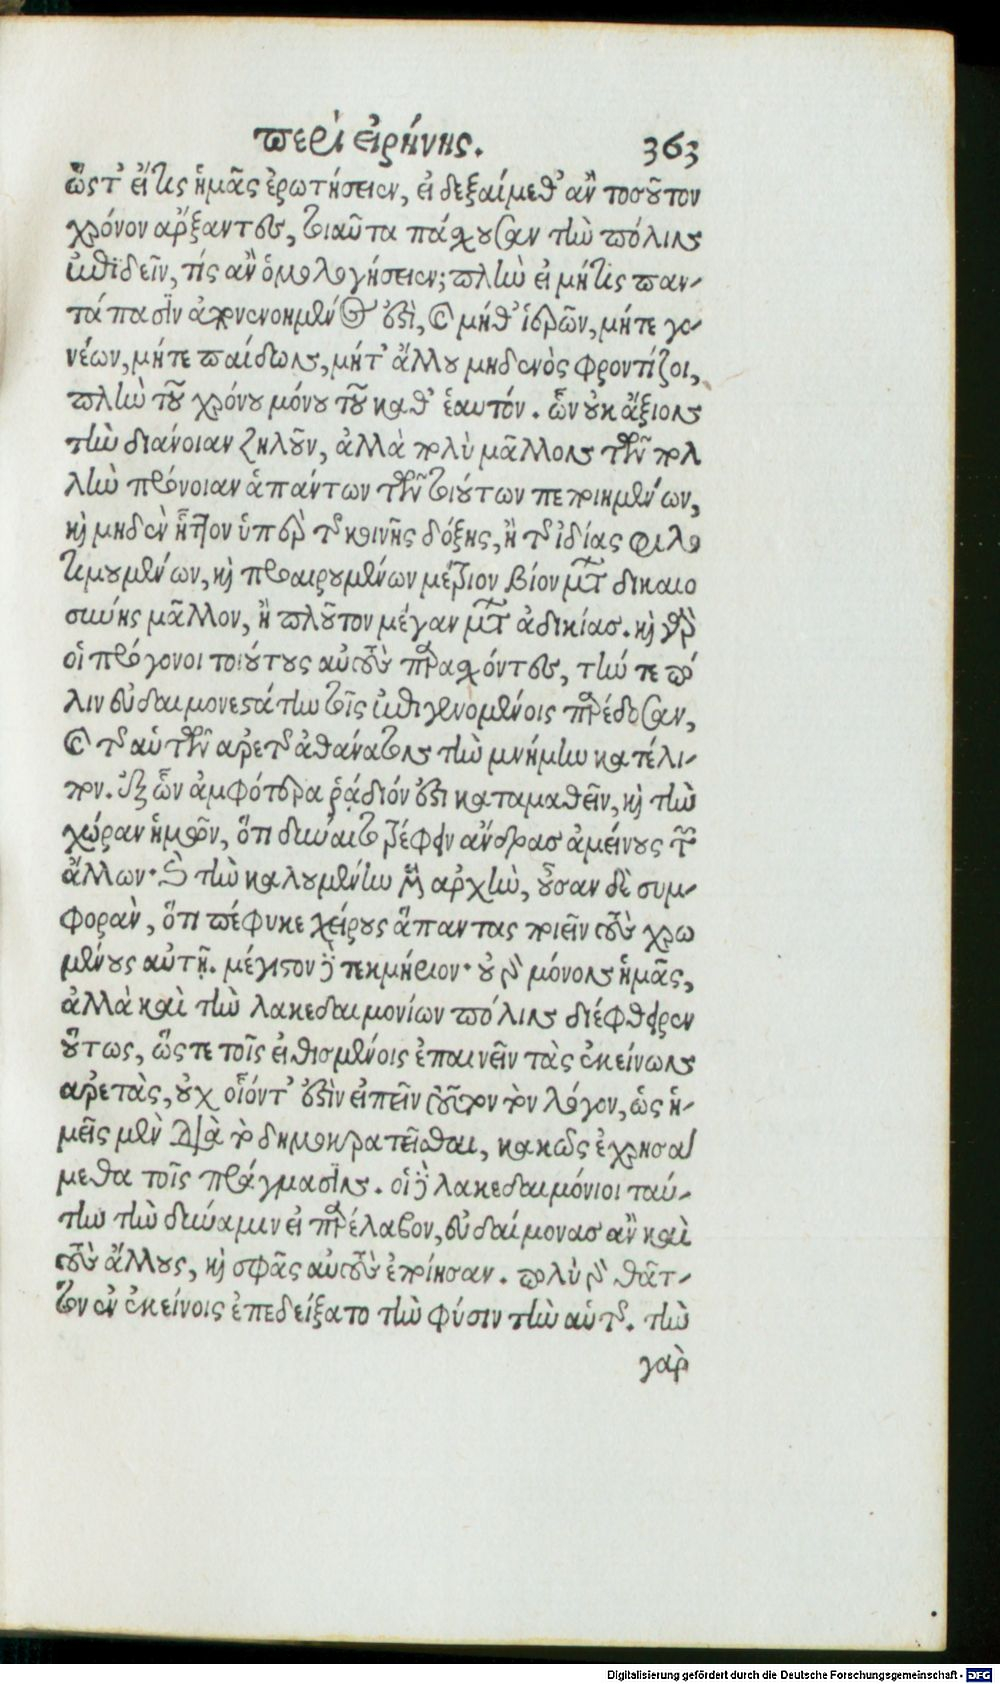 περὶ εἰρήνης. 363
ὥςτ' εἴ τις ἡμᾶς ἐρωτήσειεν, εἰ δεξαίμεθ' ἂν τοσοῦτον
χρόνον ἄρξαντες, τοιαῦτα πάσχουσαν τὴν πόλιν
ἐπιδεῖν, τίς ἂν ὁμολογήσειεν; πλὴν εἰ μή τις παν-
τάπασιν ἀπονενοημένος ἐστὶ, καὶ μήθ' ἱερῶν, μήτε γο-
νέων, μήτε παίδων, μήτ' ἄλλου μηδενὸς φροντίζοι,
πλὴν τοῦ χρόνου μόνου τοῦ καθ' ἑαυτόν. ὧν οὐκ ἄξιον
τὴν διάνοιαν ζηλοῦν, ἀλλὰ πολὺ μᾶλλον τῶν πολ
λὴν πρόνοιαν ἁπάντων τῶν τοιούτων πεποιημένων,
καὶ μηδὲν ἧττον ὑπὲρ τῆς κοινῆς δόξης, ἢ τῆς ἰδίας φιλο
τιμουμένων, καὶ προαιρουμένων μέτριον βίον μετὰ δικαιο
σύνης μᾶλλον, ἢ πλοῦτον μέγαν μετὰ ἀδικίας. καὶ γὰρ
οἱ πρόγονοι τοιούτους αὑτοὺς παρασχόντες, τήν τε πό
λιν εὐδαιμονεστάτην τοῖς ἐπιγενομένοις παρέδοσαν,
καὶ τῆς αὑτῶν ἀρετῆς ἀθάνατον τὴν μνήμην κατέλι-
πον. ἐξ ὧν ἀμφότερα ῥᾴδιόν ἐστι καταμαθεῖν, καὶ τὴν
χώραν ἡμῶν, ὅτι δύναται τρέφειν ἄνδρας ἀμείνους τῶν
ἄλλων· καὶ τὴν καλουμένην μὲν ἀρχὴν, οὖσαν δὲ συμ-
φορὰν, ὅτι πέφυκε χείρους ἅπαντας ποιεῖν τοὺς χρω
μένους αὐτῇ. μέγιστον δὲ τεκμήριον· οὐ γὰρ μόνον ἡμᾶς,
ἀλλὰ καὶ τὴν λακεδαιμονίων πόλιν διέφθειρεν
οὕτως, ὥςτε τοῖς εἰθισμένοις ἐπαινεῖν τὰς ἐκείνων
ἀρετὰς, οὐχ οἷόντ' ἐστὶν εἰπεῖν τοῦτον τὸν λόγον, ὡς ἡ-
μεῖς μὲν διὰ τὸ δημοκρατεῖσθαι, κακῶς ἐχρησά
μεθα τοῖς πράγμασιν. οἱ δὲ λακεδαιμόνιοι ταύ-
την τὴν δύναμιν εἰ παρέλαβον, εὐδαίμονας ἂν καὶ
τοὺς ἄλλους, καὶ σφᾶς αὐτοὺς ἐποίησαν. πολὺ γὰρ θᾶτ-
τον ἐν ἐκείνοις ἐπεδείξατο τὴν φύσιν τὴν αὑτῆς. τὴν
γὰρ
Digitalisierung gefördert durch die Deutsche Forschungsgemeinschaft - DFG